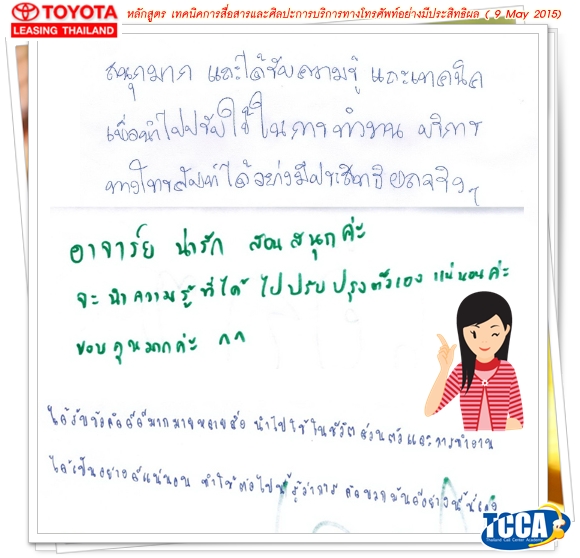 TOYOTA
LEASING THAILAND
หลักสูตร เทคนิคการสื่อสารและศิลปะการบริการทางโทรศัพท์อย่างมีประสิทธิผล ( 9 May 2015)
สนุกมาก และได้รับความรู้ และเทคนิค
เพื่อนำไปปรับใช้ในการทำงาน บริการ
ทางโทรศัพท์ได้อย่างมีประสิทธิผลจริงๆ
อาจารย์ น่ารัก สอนสนุกค่ะ
จะนำความรู้ที่ได้ ไปปรับปรุงตัวเอง แน่นอนค่ะ
ขอบคุณมากค่ะ ^^
ได้รับข้อคิดดีๆมากมายหลายข้อ นำไปใช้ในชีวิตส่วนตัวและการทำงาน
ได้เป็นอย่างดีแน่นอน ทำให้ต่อไปนี้รู้ว่าการ คิดบวกมันดีอย่างนี้นี่เอง
TCCA
Thailand Call Center Academy